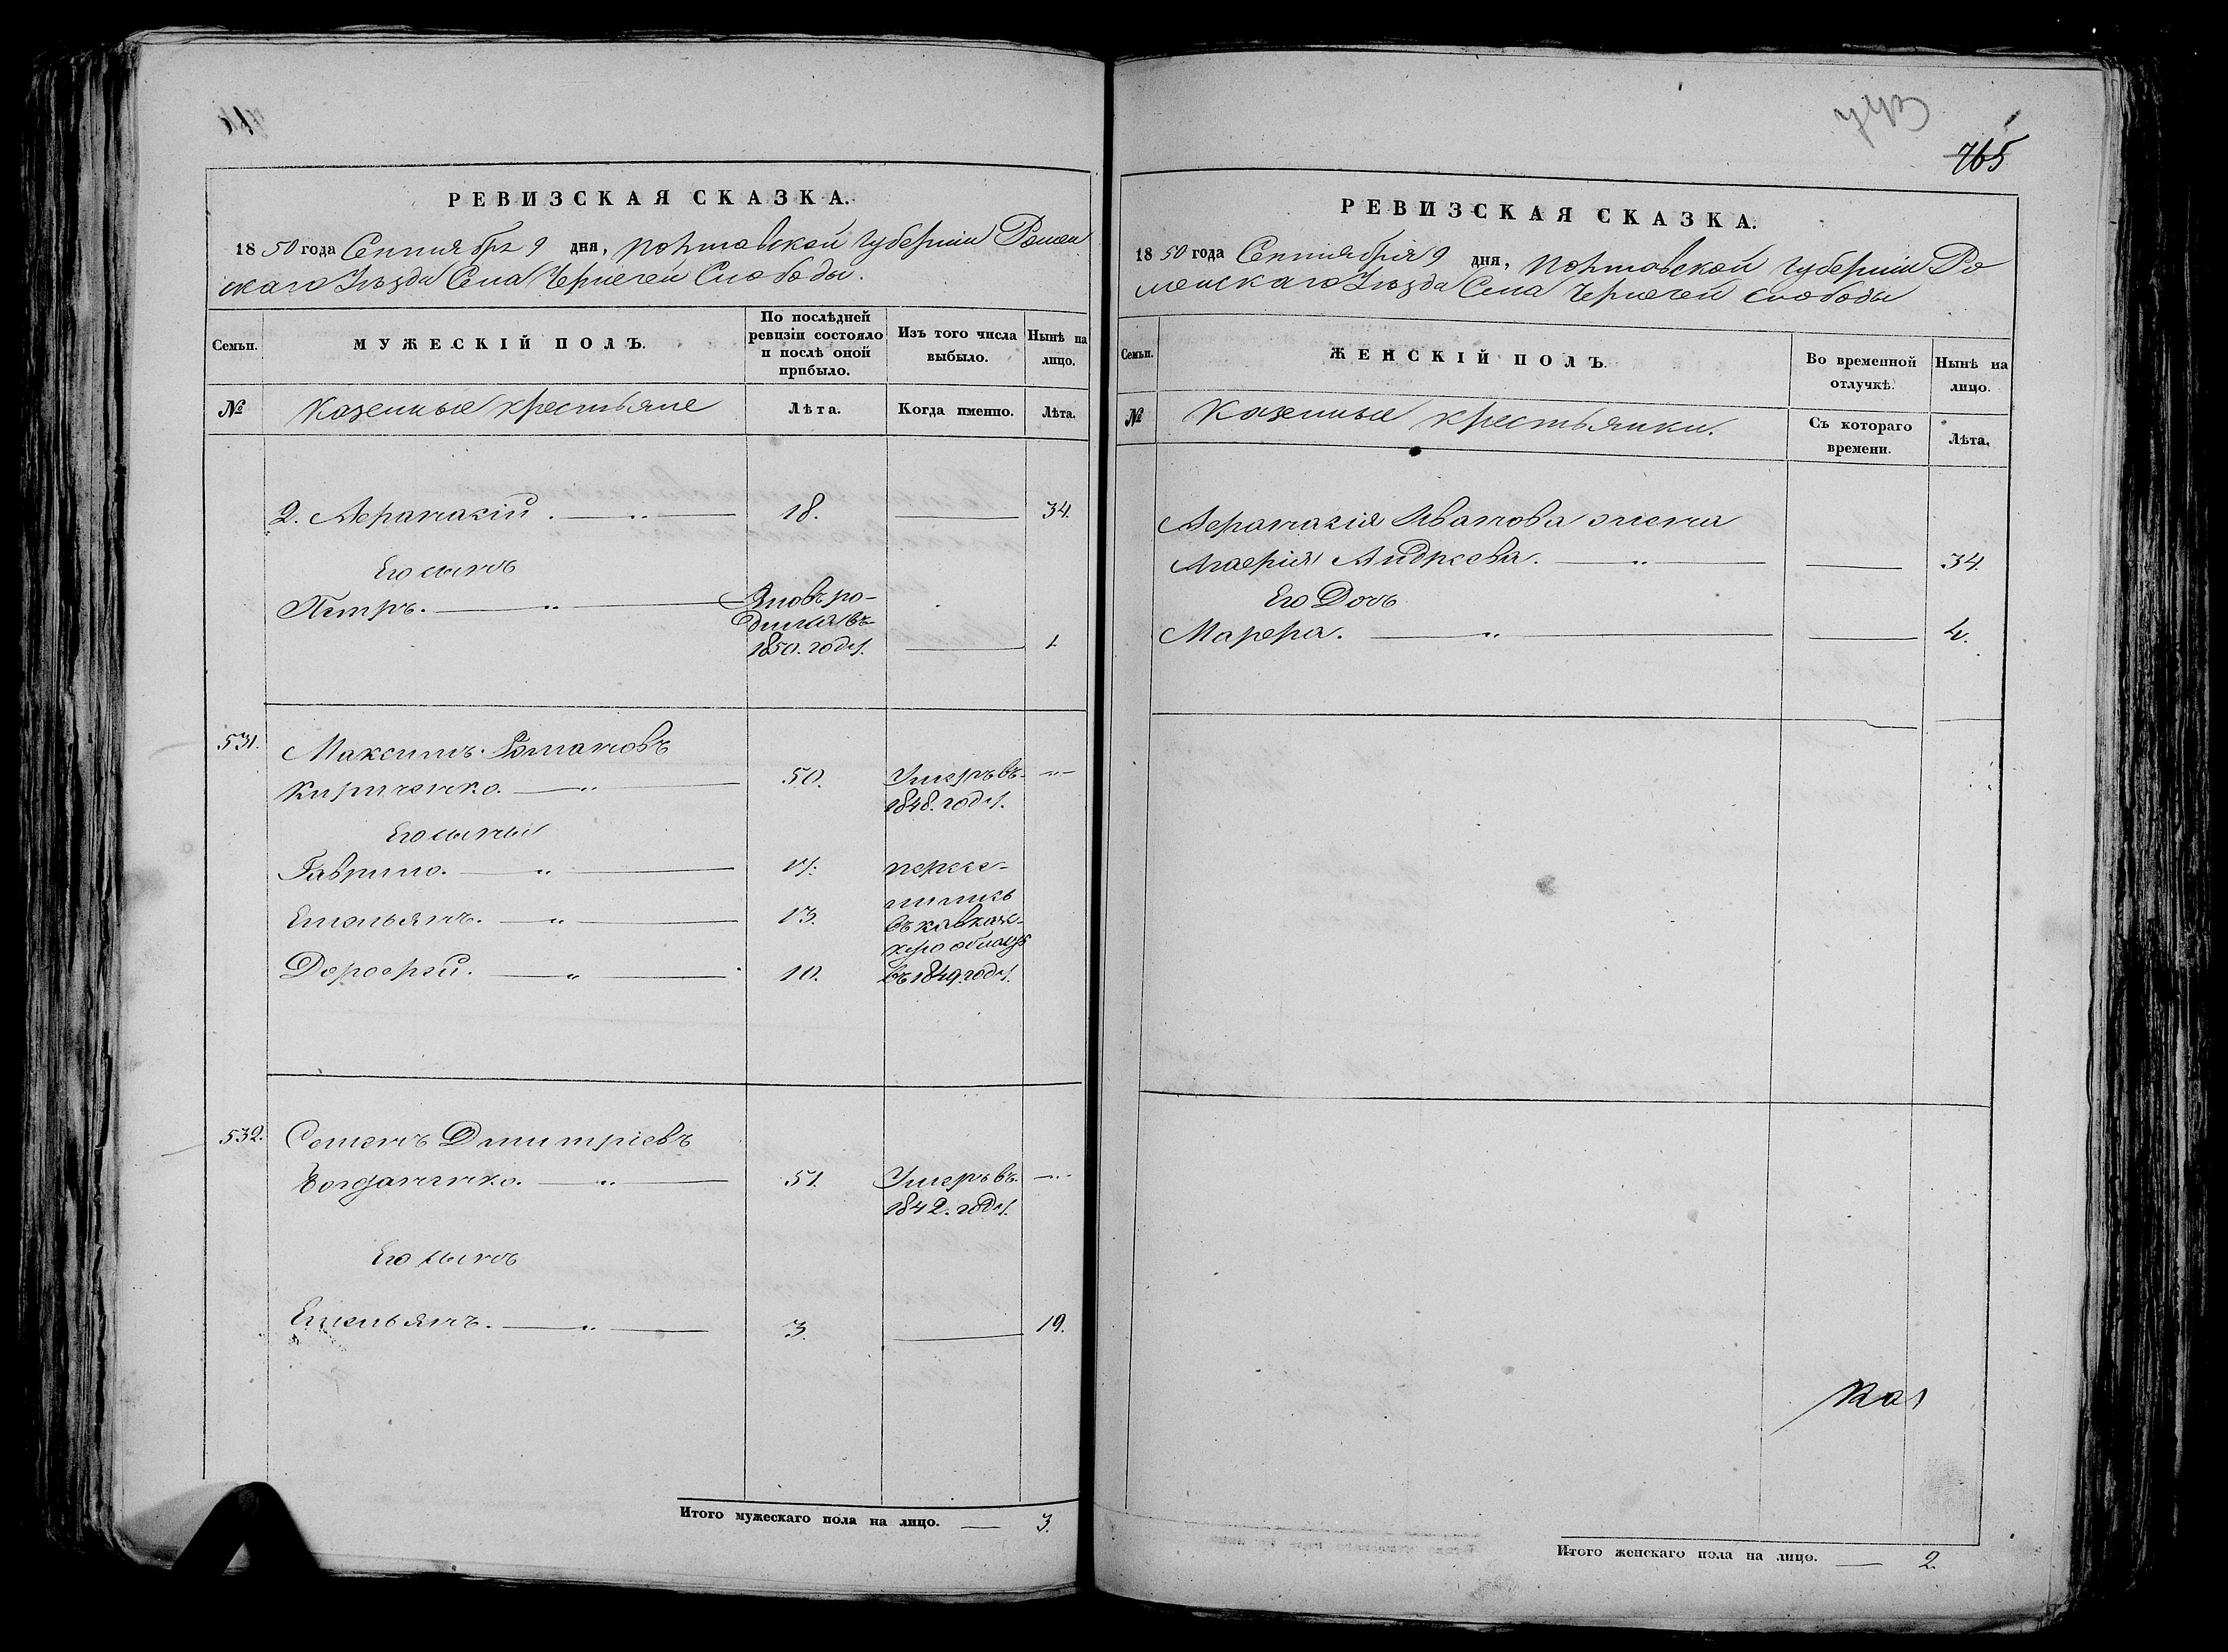 РЕВИЗСКАЯ СКАЗКА.
1850 года Сентября 9 дня, Полтавской Губернии Ромен
скаго Уезда Села Чернечей Слободы.
Семьи.
МУЖЕСКІЙ ПОЛЪ.
По послѣдней
ревизіи состояло
и послѣ оной
прибыло.
Изъ того числа
выбыло.
Нынѣ на
лицо.
№
Казенные крестьяне
Лѣта.
Когда именно.
Лѣта.
2. 18. 34.
Его сынъ
Петръ. Вновь ро-
дился въ
1850. году. 1.
531. Максимъ Романовъ
Кириченко. 50. Умеръ въ
1848. году.
Его сыны
Гаврило. 17. пересе-
лились
Емельянъ. 13. въ кавказ-
Дорофей. 10. въ 1849. году.
532. Семенъ Дмитріевъ
51. Умеръ въ
1842. году.
Его сынъ
Емельянъ. 3. 19.
Итого мужескаго пола на лицо. 3.
765
РЕВИЗСКАЯ СКАЗКА.
1850 года Сентября 9 дня, Полтавской Губерніи Ро
менскаго Уезда Села Чернечей Слободы
Семьи.
ЖЕНСКІЙ ПОЛЪ.
Во временной
отлучкѣ.
Нынѣ на
лицо.
№
Казенные крестьянки.
Съ котораго
времени.
Лѣта.
Иванова жена
Андреева. 34.
Его Дочь
Марфа. 4.
Итого женскаго пола на лицо. 2.